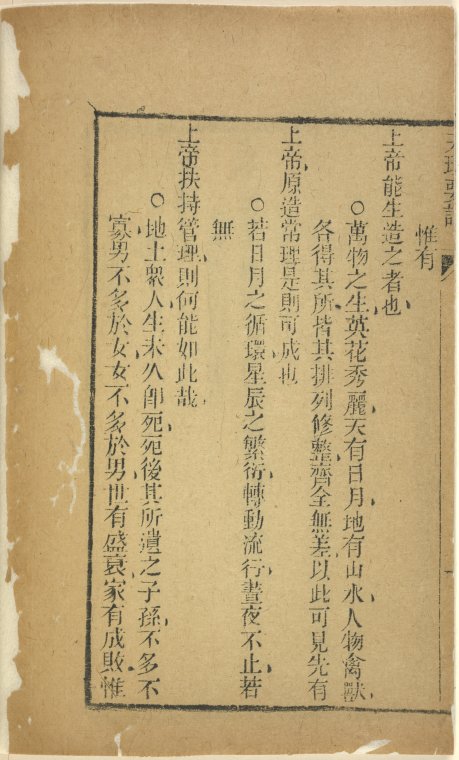 天理要論
惟有
上帝能生造之者也
○萬物之生英花秀麗天有日月地有山水人物禽獸
各得其所皆其排列修整齊全無差以此可見先有
上帝原造常理是則可成也
○若日月之循環星辰之繁衍轉動流行晝夜不止若
無
上帝扶持管理則何能如此哉
○地土衆人生未久卽死死後其所遺之子孫不多不
寡男不多於女女不多於男世有盛衰家有成敗惟